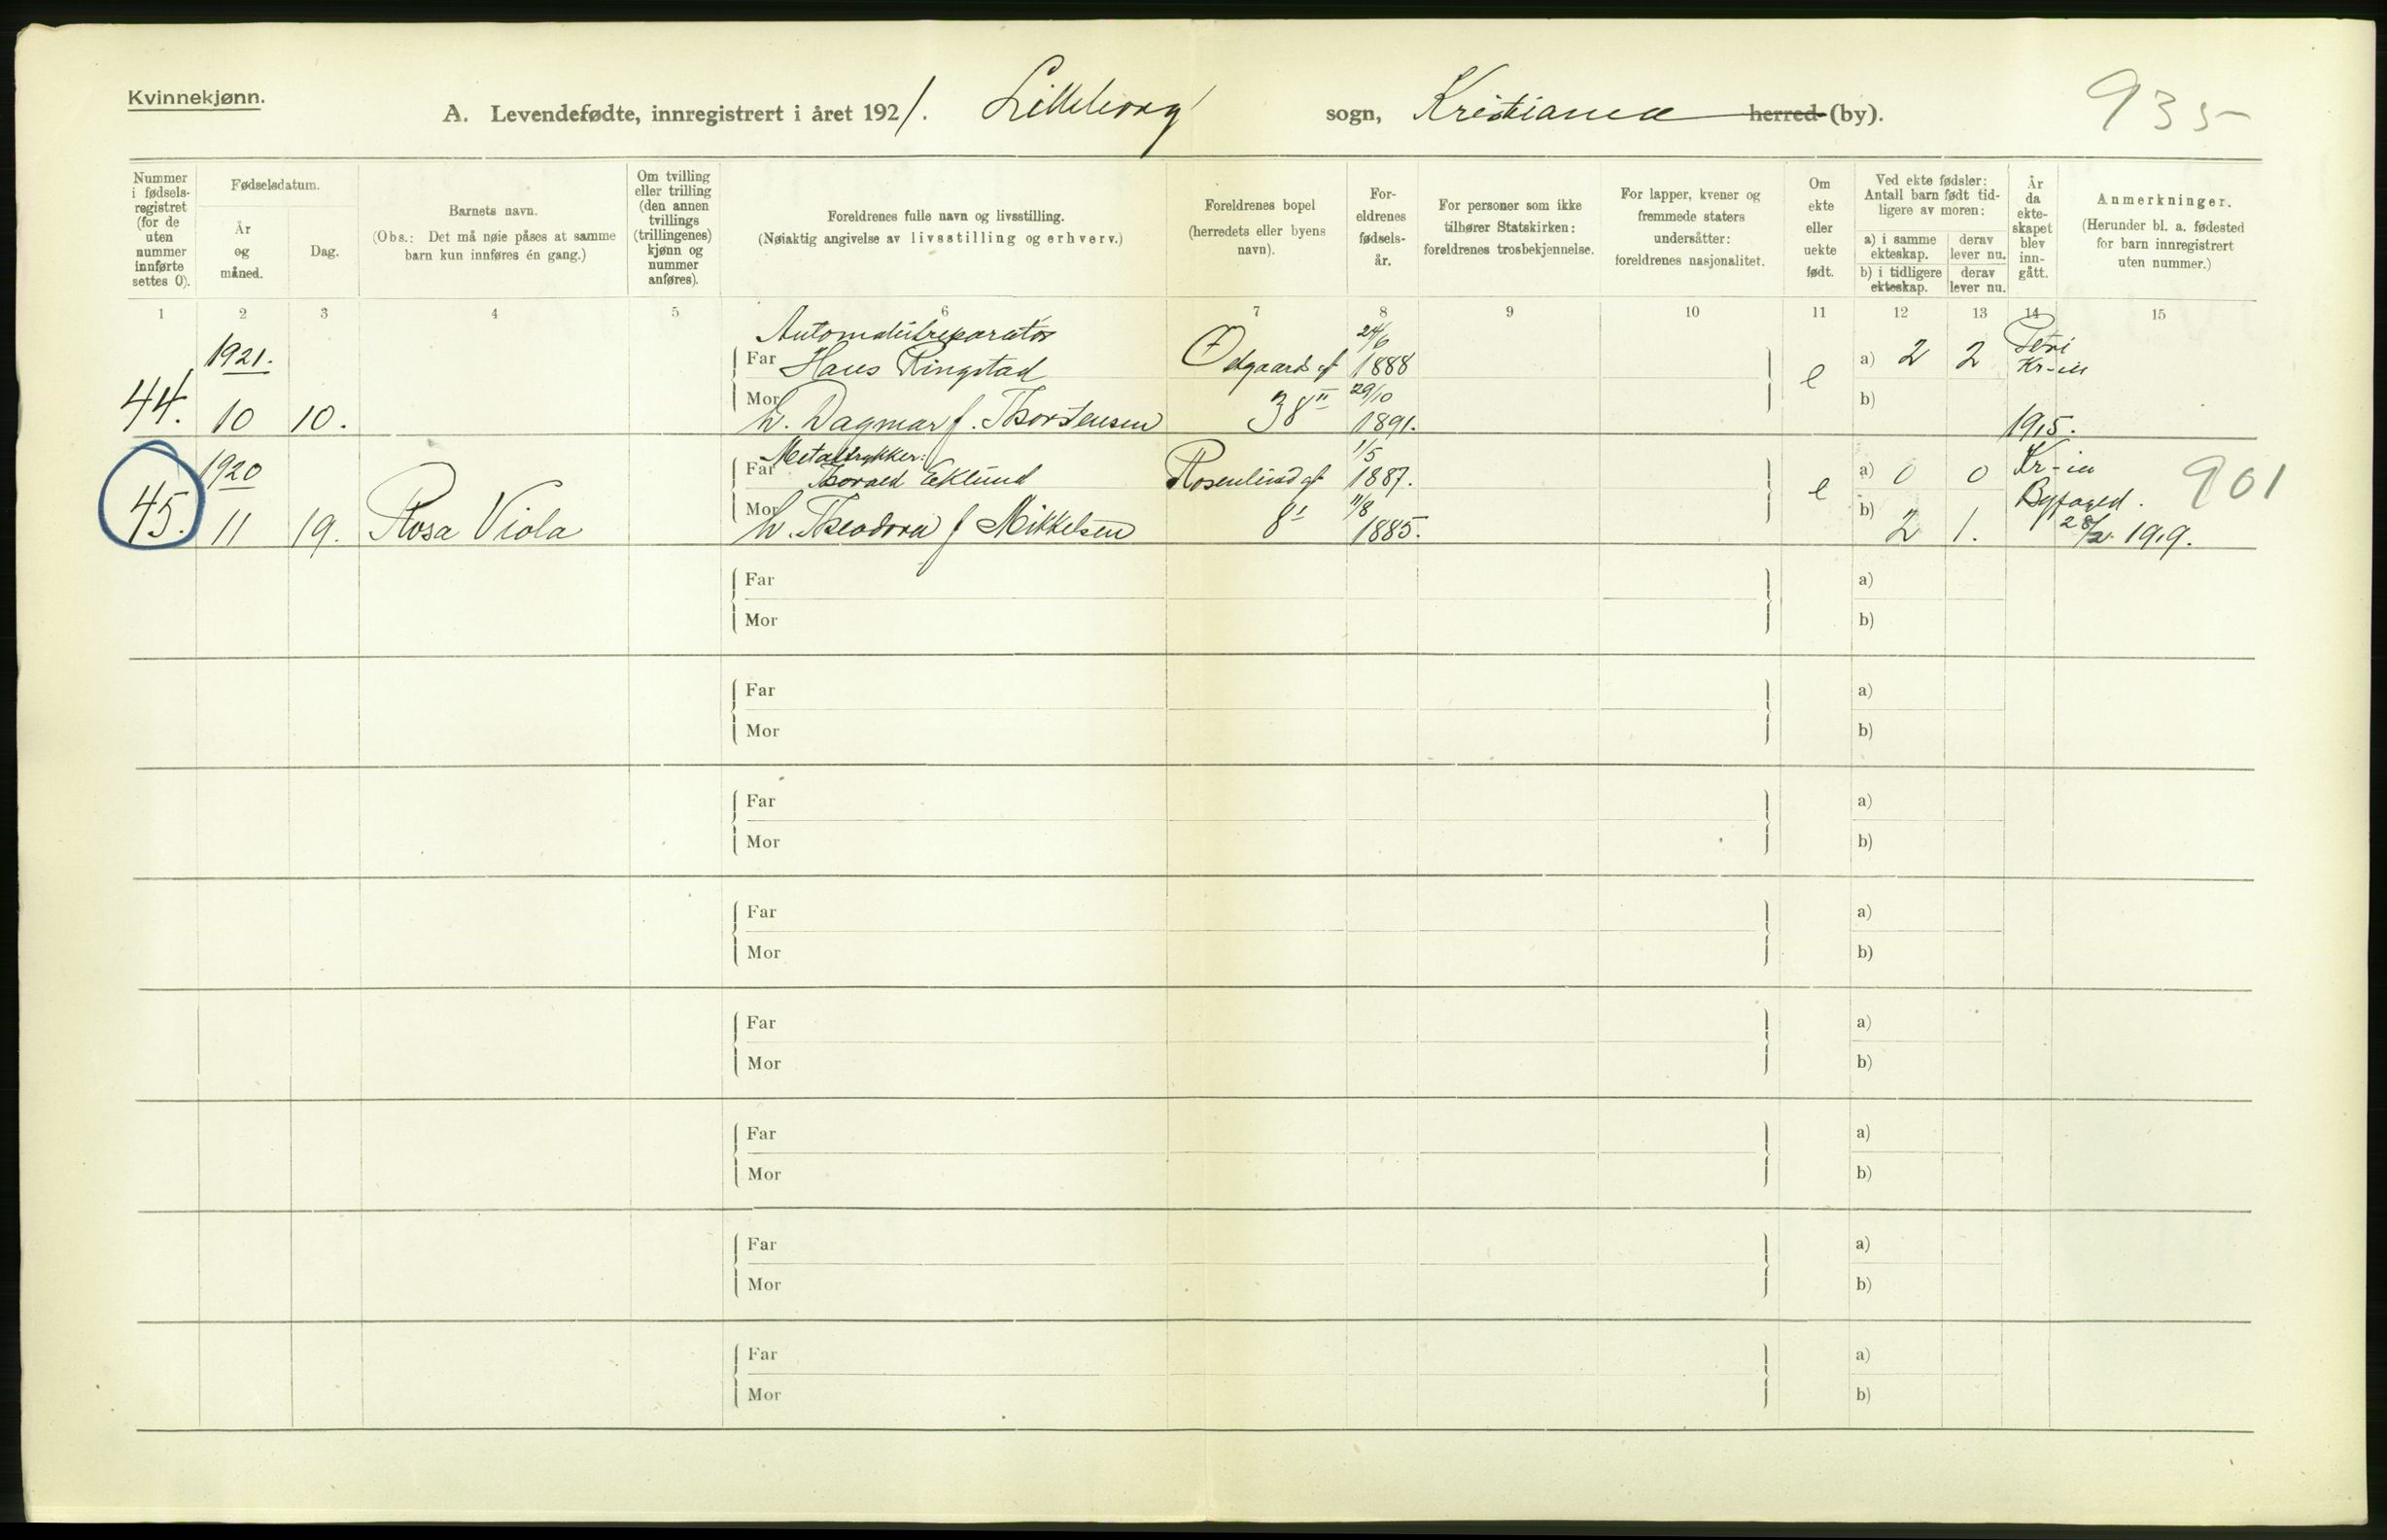 Kvinnekjønn.
A. Levendefødte, innregistrert i året 1921. Lilleborg sogn, Kristiania herred (by).
935
Nummer i fødsels-registret (for de uten nummer innførte settes 0).
Fødselsdatum.
År og måned.
Dag.
Barnets navn.
(Obs.: Det må nøie påses at samme barn kun innføres én gang.)
Om tvilling eller trilling (den annen tvillings (trillingenes) kjønn og nummer anføres).
Foreldrenes fulle navn og livsstilling.
(Nøiaktig angivelse av livsstilling og erhverv.)
Foreldrenes bopel (herredets eller byens navn).
For-eldrenes fødsels-år.
For personer som ikke tilhører Statskirken: foreldrenes trosbekjennelse.
For lapper, kvener og fremmede staters undersåtter: foreldrenes nasjonalitet.
Om ekte eller uekte født.
Ved ekte fødsler: Antall barn født tid-ligere av moren:
a) i samme ekteskap.
derav lever nu.
b) i tidligere ekteskap.
derav lever nu.
År da ekte-skapet blev inn-gått.
Anmerkninger.
(Herunder bl. a. fødested for barn innregistrert uten nummer.)
1 2 3 4 5 6 7 8 9 10 11 12 13 14 15
1921.
Far Hans Ringstad
24/6 1888
e
a) 2 2
Petri Kr-ia
44. 10 10.
Mor h. Dagmar f. Thorstensen
38 II
29/10 1891.
b)
1915.
1920
Metaltrykker:
Far Thorvald Eklund
Rosenlundgt
1/5 1887.
e
a) 0 0
Kr-ia
Byfoged.
901
45. 11 19. Rosa Viola
Mor h. Theodora f Mikkelsen
8 I
11/8 1885.
b) 2 1.
28/2 1919.
Far a)
Mor b)
Far a)
Mor b)
Far a)
Mor b)
Far a)
Mor b)
Far a)
Mor b)
Far a)
Mor b)
Far a)
Mor b)
Far a)
Mor b)